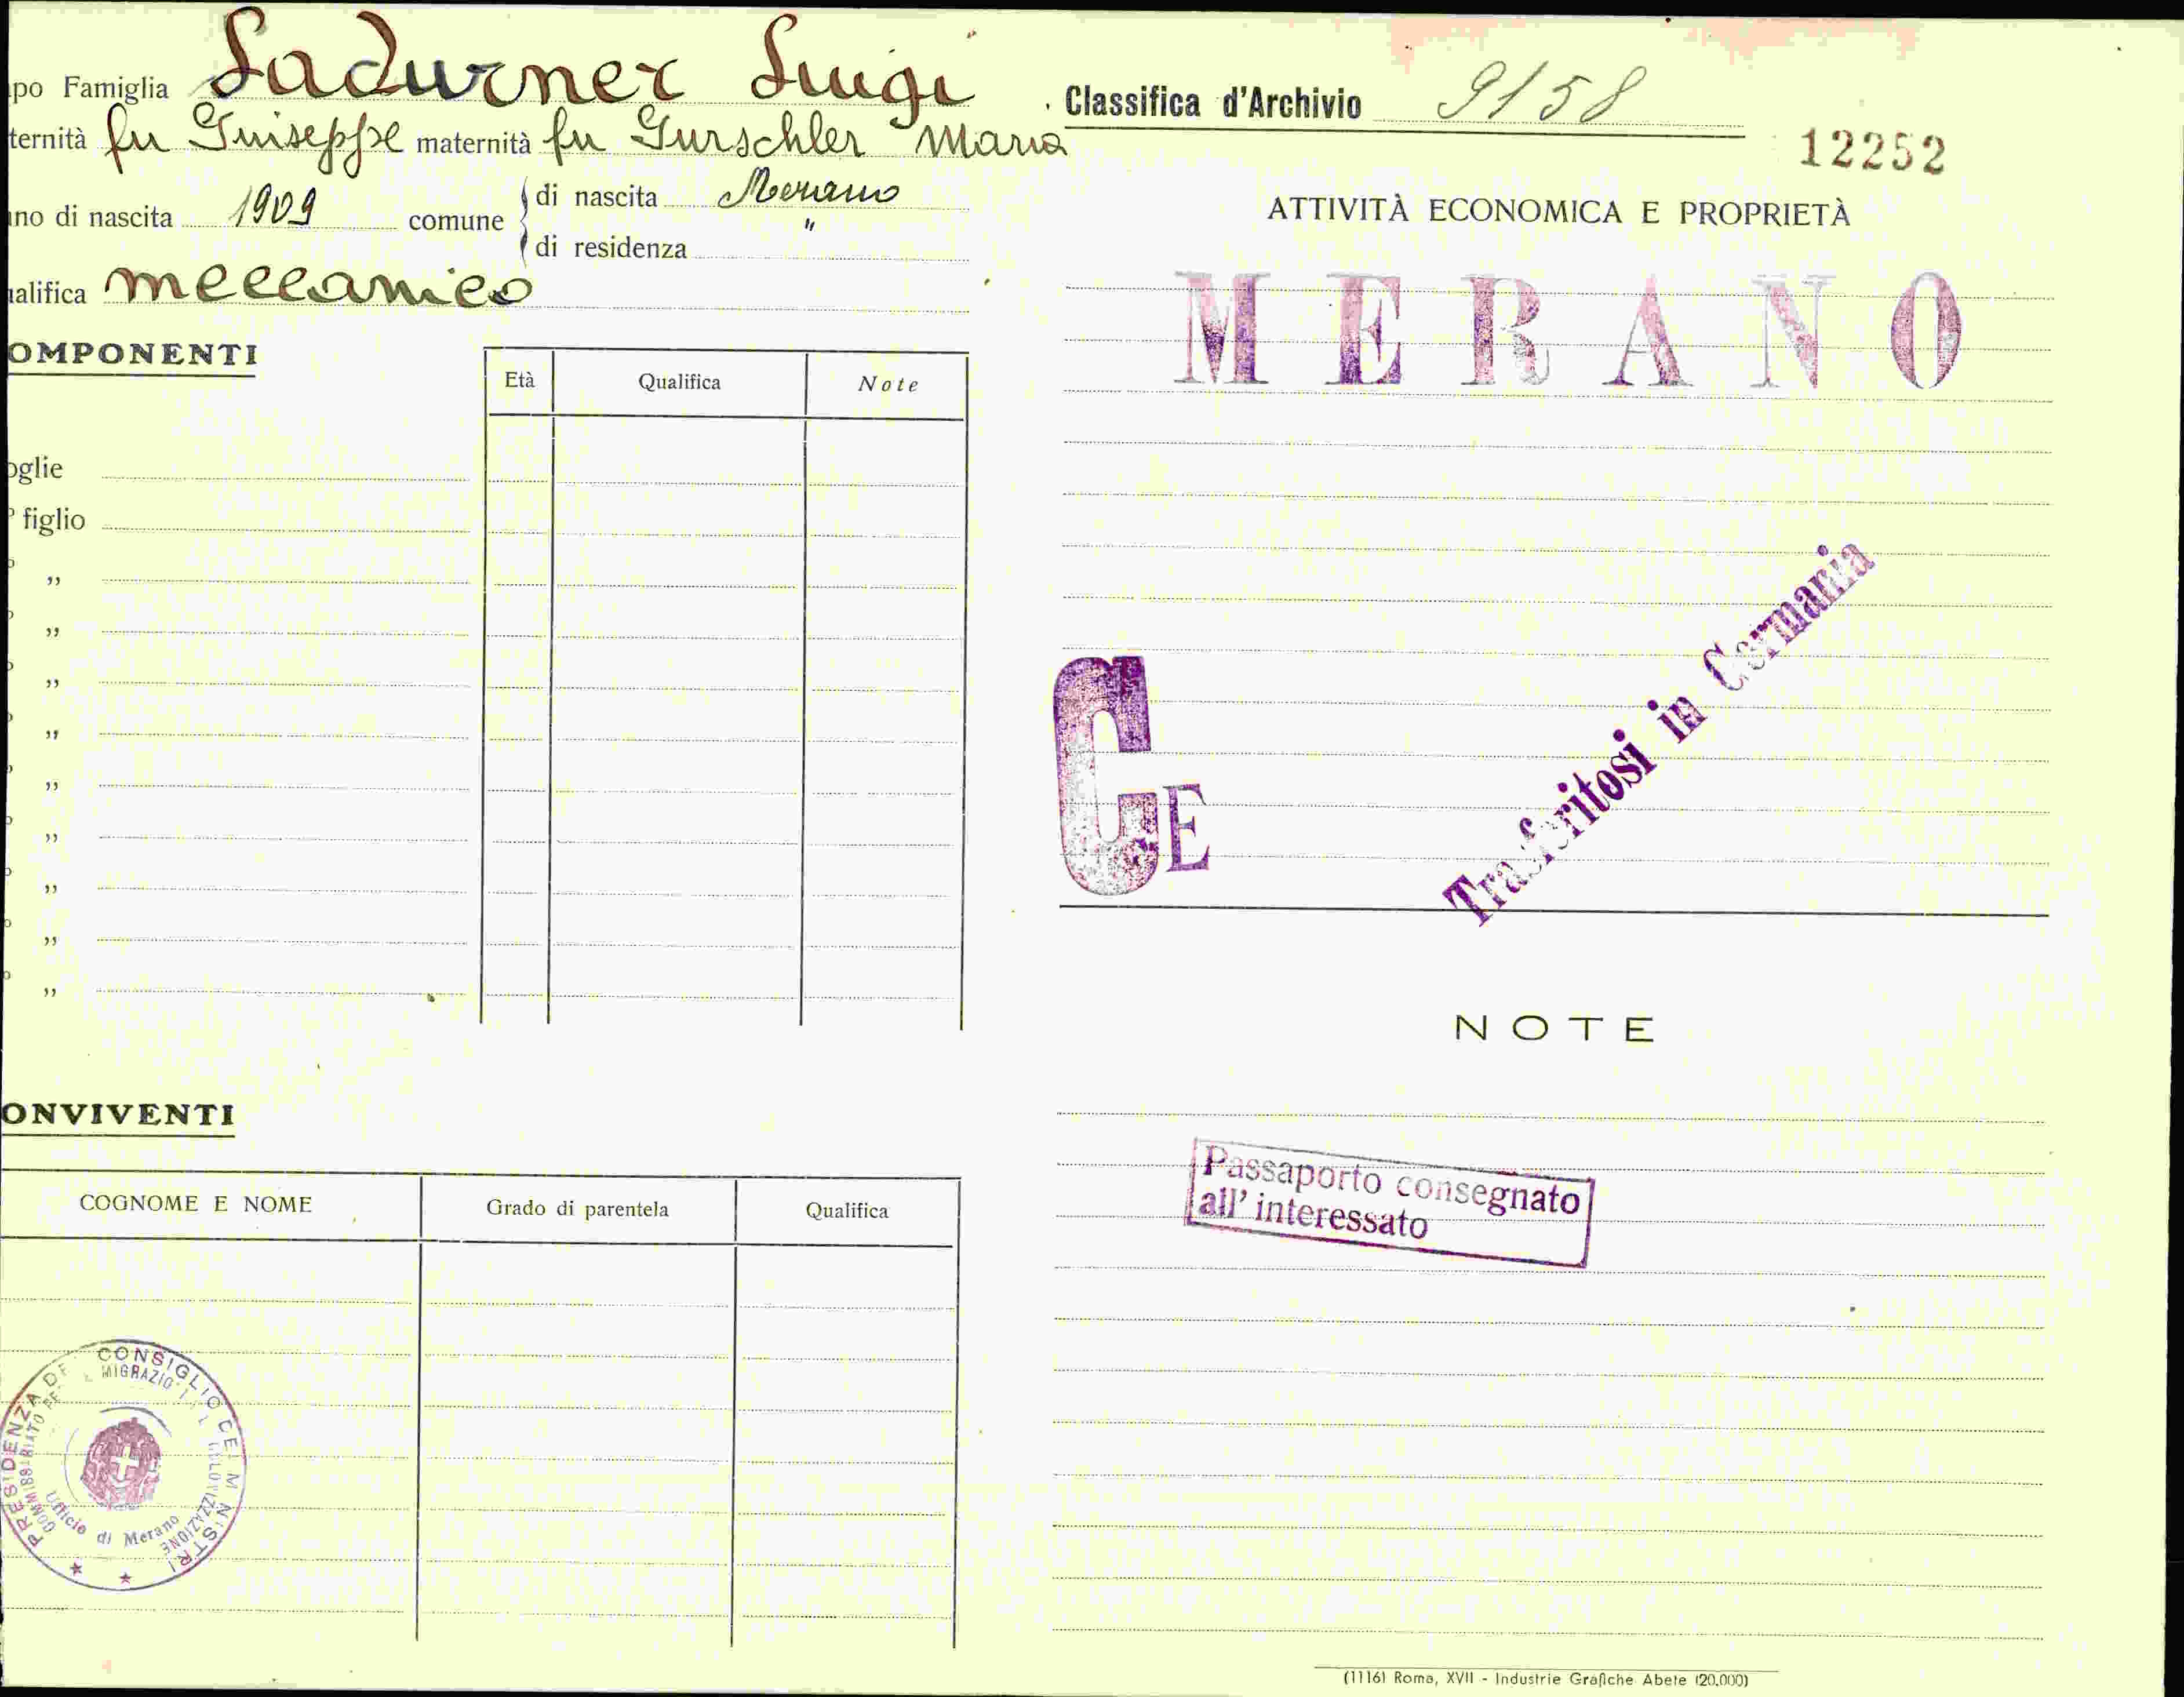 po Famiglia Ladurner Luigi
ternità fu Guiseppe maternità fu Gurschler Maria
no di nascita 1909 comune di nascita Merano
di residenza "
alifica meccanico
OMPONENTI
Età Qualifica Note
oglie
figlio
"
"
"
"
"
"
"
"
"
ONVIVENTI
COGNOME E NOME Grado di parentela Qualifica
PRESIDENZA DEL CONSIGLIO DEI MINISTRI
Ufficio di Merano
Classifica d'Archivio 9158
12252
ATTIVITÀ ECONOMICA E PROPRIETÀ
MERANO
Trasferitosi in Germania
G E
NOTE
Passaporto consegnato
all' interessato
(1116) Roma, XVII - Industrie Grafiche Abete (20.000)